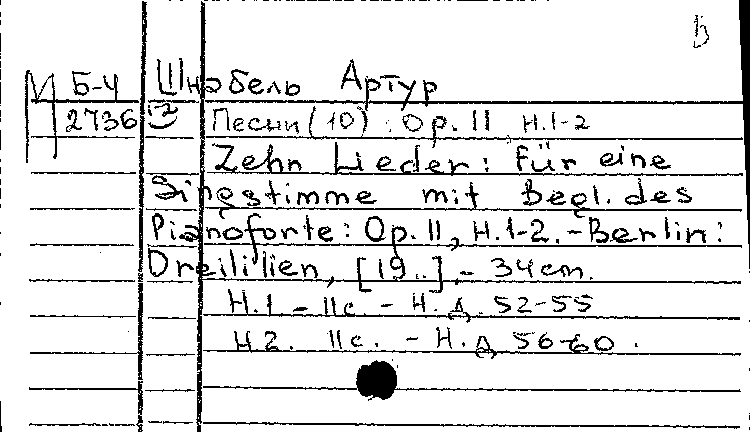 В
М Б-4 Шнабель Артур
2736 Песни (10). Op. 11 H.1-2
Zehn Lieder: für eine
Singstimme mit Begl. des
Pianoforte: Op. 11, H.1-2. - Berlin:
Dreililien, [19..]. - 34cm.
H.1 - 11c. - Н.д. 52-55
H.2. 11c. - Н.д. 56-60.